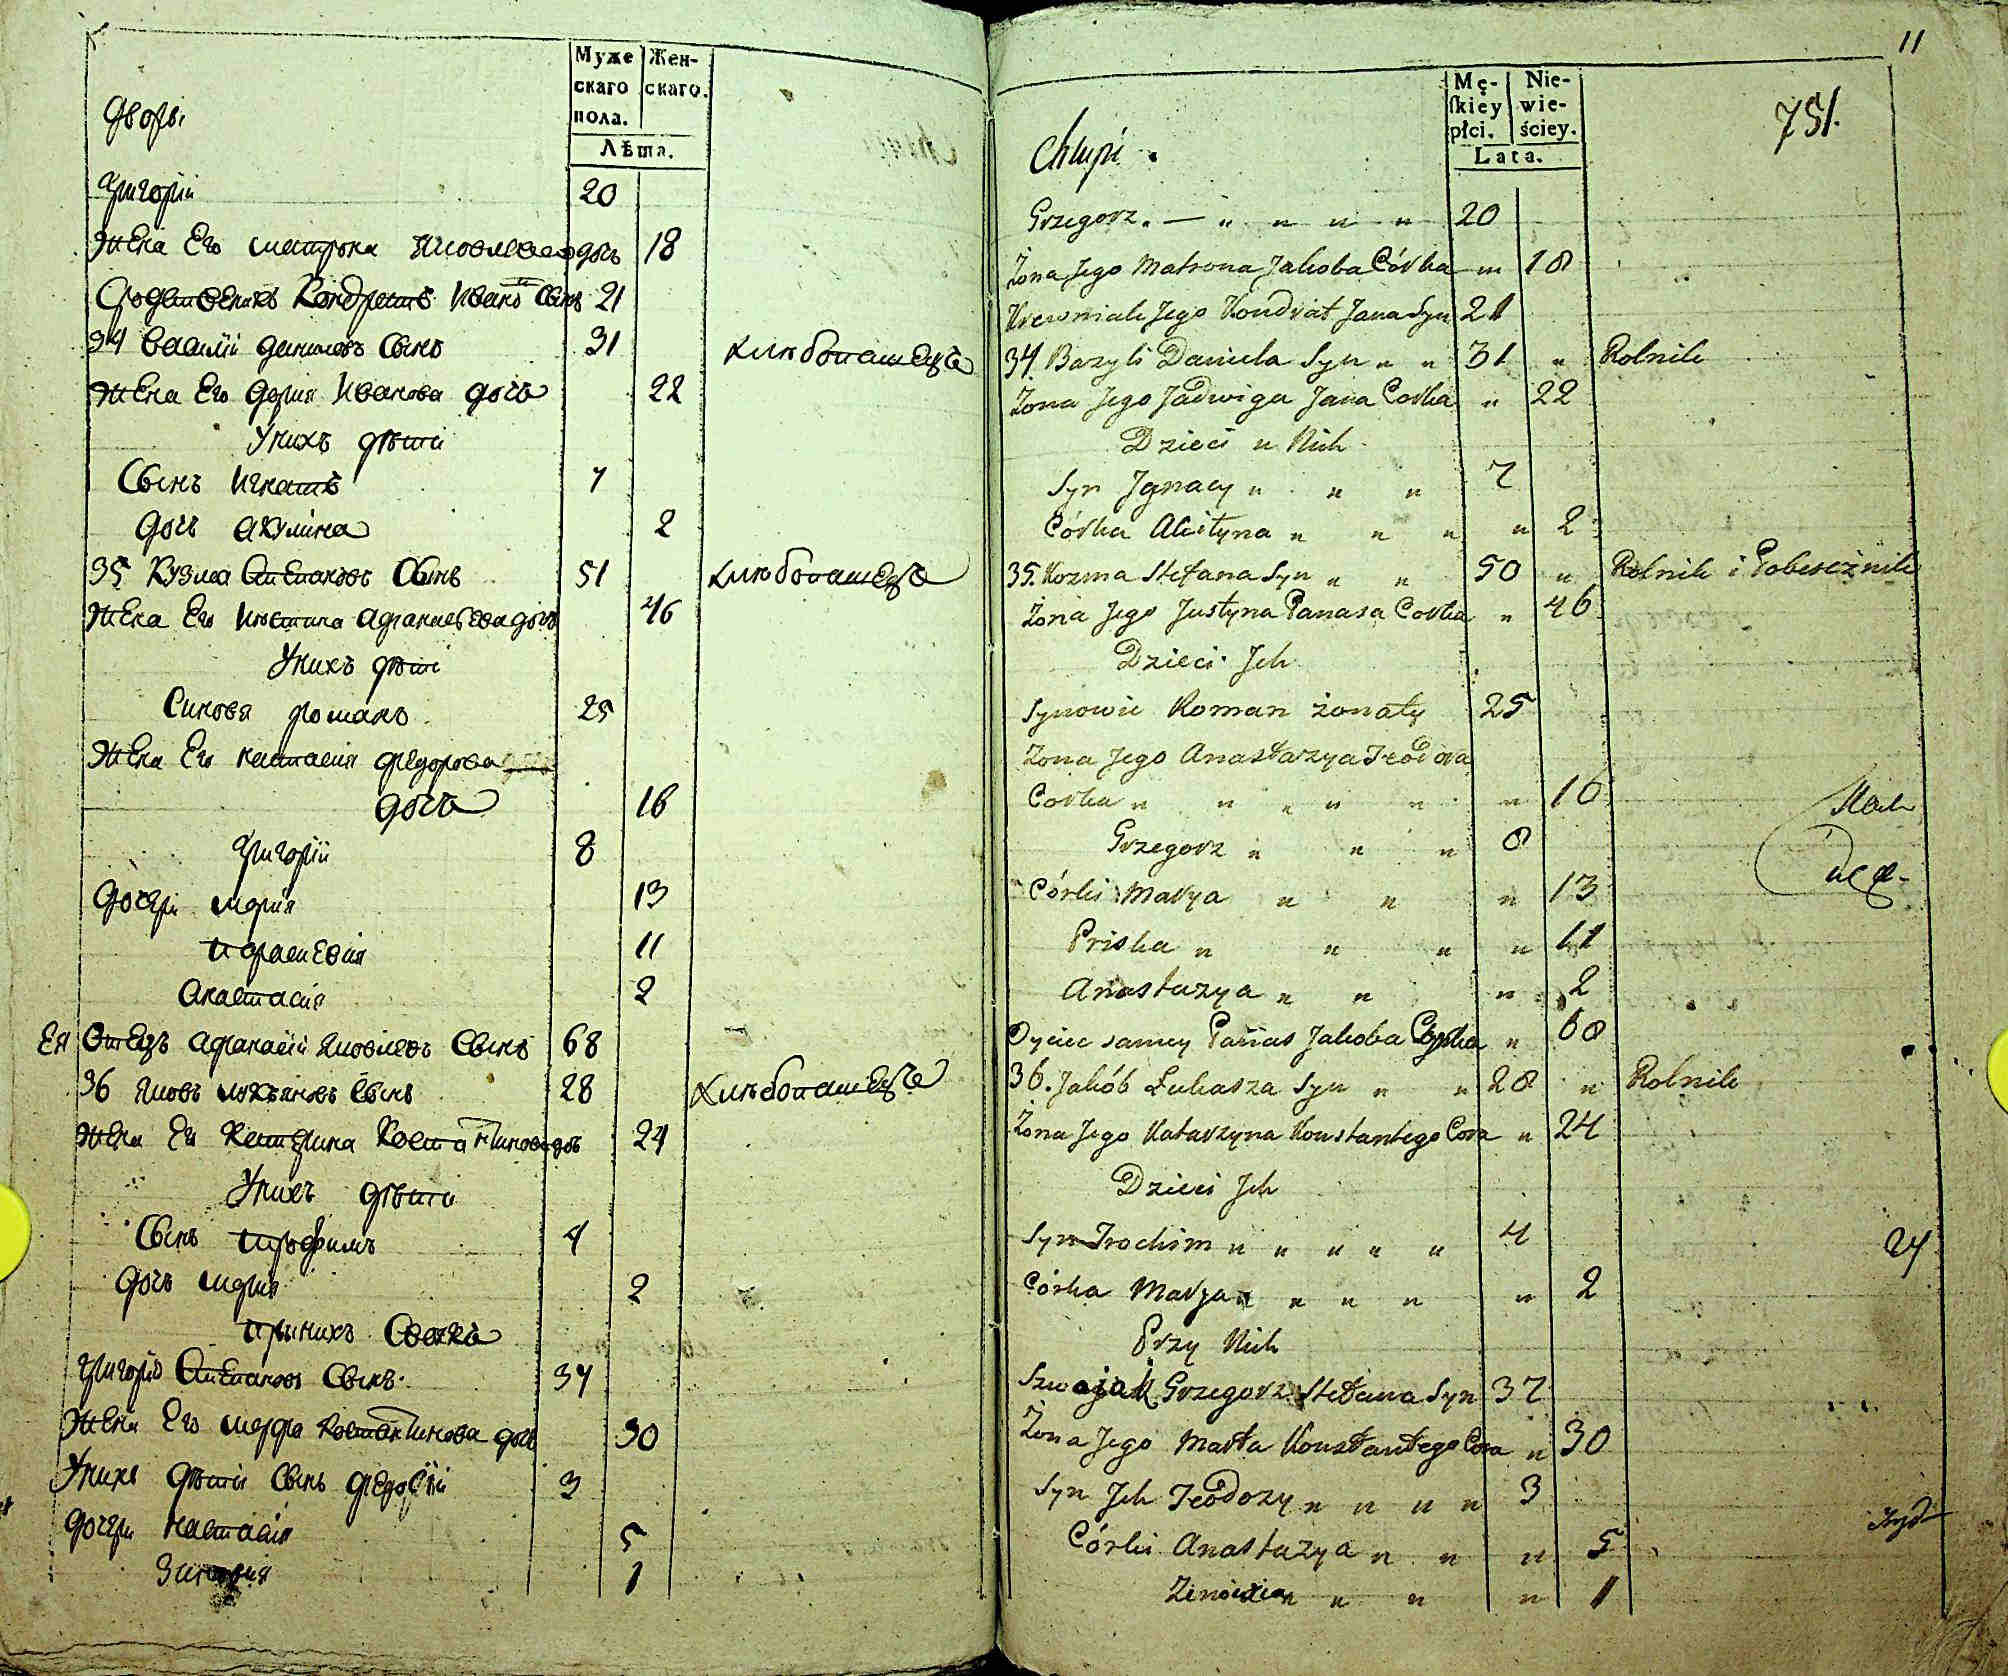 Муже Жен-
скаго скаго.
пола.
Лѣта.
Дворы
Григорій 20
Жена Его Матрона Яковлева дочь 18
Сродственикъ Кондратъ Ивановъ Сынъ 21
34 Василій Даниловъ Сынъ 31 Хлѣбопашецъ
Жена Его Дория Иванова дочь 22
У нихъ дѣти
Сынъ Игнатъ 7
Дочь Акулина 2
35 Кузма Степановъ Сынъ 51 Хлѣбопашецъ
Жена Его Иустина Афанасьева дочь 46
У нихъ дѣти
Синовя Романъ 25
Жена Его Настасия Федорова
дочь 16
Григорій 8
Дочери Мария 13
Парасковия 11
Анастасия 2
Ея Отецъ Афанасій Яковлевъ Сынъ 68
36 Яковъ Лукъяновъ Сынъ 28 Хлѣбопашецъ
Жена Ея Катерина Костантинова дочь 24
У нихъ дѣти
Сынъ Трофимъ 4
Дочь Мария 2
При нихъ Своякъ
Григорій Степановъ Сынъ 37
Жена Его Марфа Костантинова дочь 30
У нихъ дѣти Сынъ Федосій 3
Дочери Настасия 5
Зиновия 1
11
Mę- Nie-
skiey wie-
płci. ściey.
Lata.
751.
Chłupi.
Grzegorz. — „ „ „ „ „ 20
Żona Jego Matrona Jakoba Córka „ 18
Krewniak Jego Kondrat Jana Syn 21
34. Bazyli Daniela Syn „ „ 31 „ Rolnik
Żona Jego Jadwiga Jana Corka „ 22
Dzieci u Nich
Syn Jgnacy „ „ „ 7
Córka Akulyna „ „ „ „ 2
35. Kozma Stefana Syn „ „ 50 „ Rolnik i Pobereżnik
Żona Jego Justyna Panasa Corka „ 46
Dzieci Jch
Synowie Roman żonaty 25
Żona Jego Anastazya Teodora
Corka „ „ „ „ „ „ 16
Grzegorz „ „ „ 8
Córki Marya „ „ „ 13
Priska „ „ „ „ 11
Anastazya „ „ „ 2
Oyciec samey Panas Jakoba „ 68
36. Jakób Łukasza Syn „ „ 28 „ Rolnik
Żona Jego Katarzyna Konstantego Cora „ 24
Dzieci Jch
Syn Trochim „ „ „ „ „ 4
24
Córka Marya „ „ „ „ „ 2
Przy Nich
Szwajak Grzegorz Stefana Syn 37
Żona Jego Marta Konstantego Cora „ 30
Syn Jch Teodozy „ „ „ „ 3
Córki Anastazya „ „ „ 5
Zinowia „ „ „ „ 1